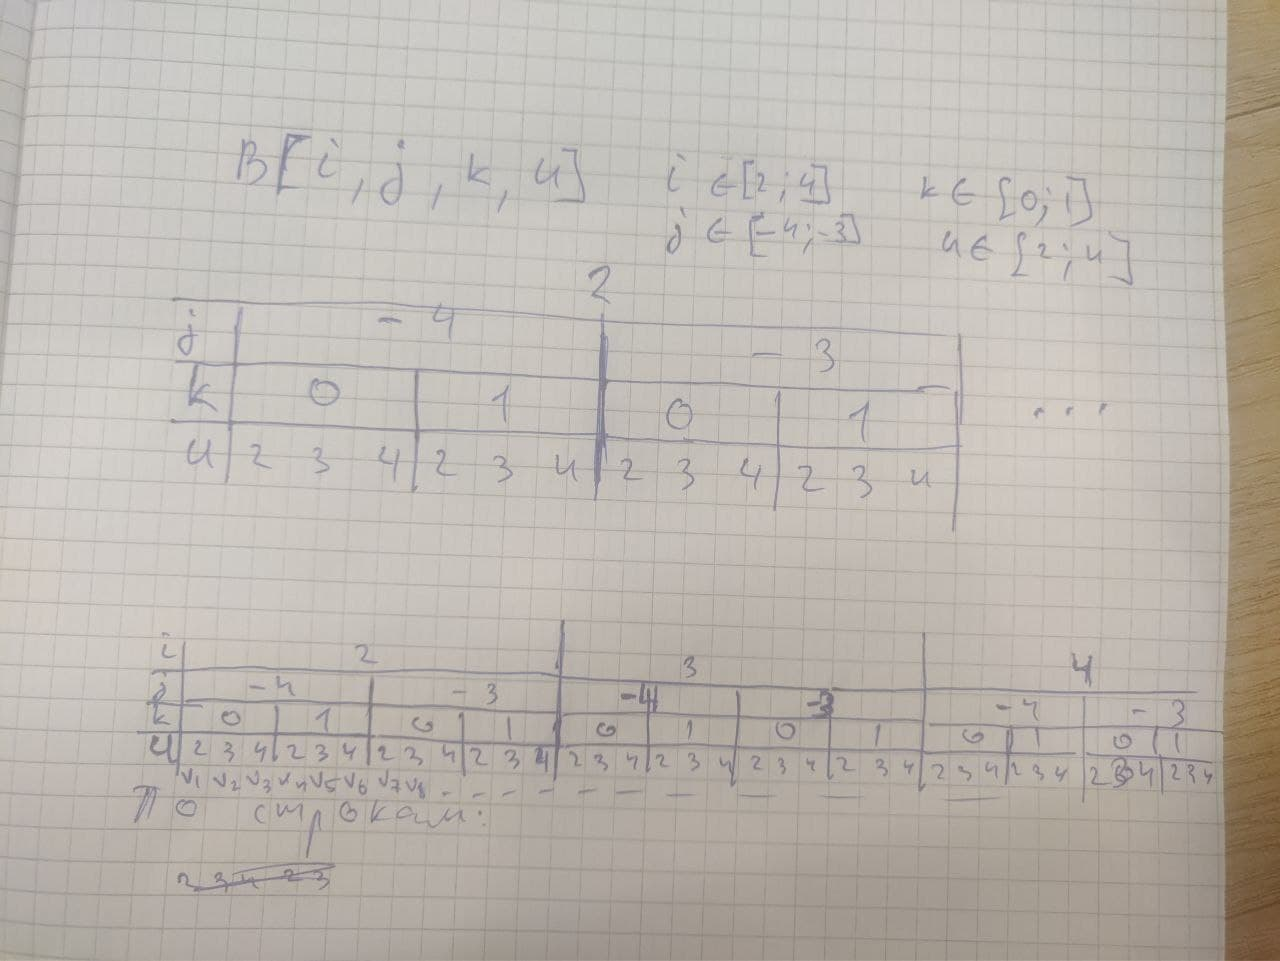 B[i, j, k, ч] i ∈ [2; 4] k ∈ [0; 1]
j ∈ [-4; -3] ч ∈ [2; 4]
2
j -4 -3
k 0 1 0 1 ...
ч 2 3 4 2 3 4 2 3 4 2 3 4
i 2 3 4
j -4 -3 -4 -3 -4 -3
k 0 1 0 1 0 1 0 1 0 1 0 1
ч 2 3 4 2 3 4 2 3 4 2 3 4 2 3 4 2 3 4 2 3 4 2 3 4 2 3 4 2 3 4 2 3 4 2 3 4
v1 v2 v3 v4 v5 v6 v7 v8 - - - - - - - - - -
По строкам:
2 3 4 2 3